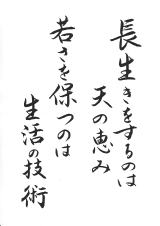 長生きをするのは
天の恵み
若さを保つのは
生活の技術